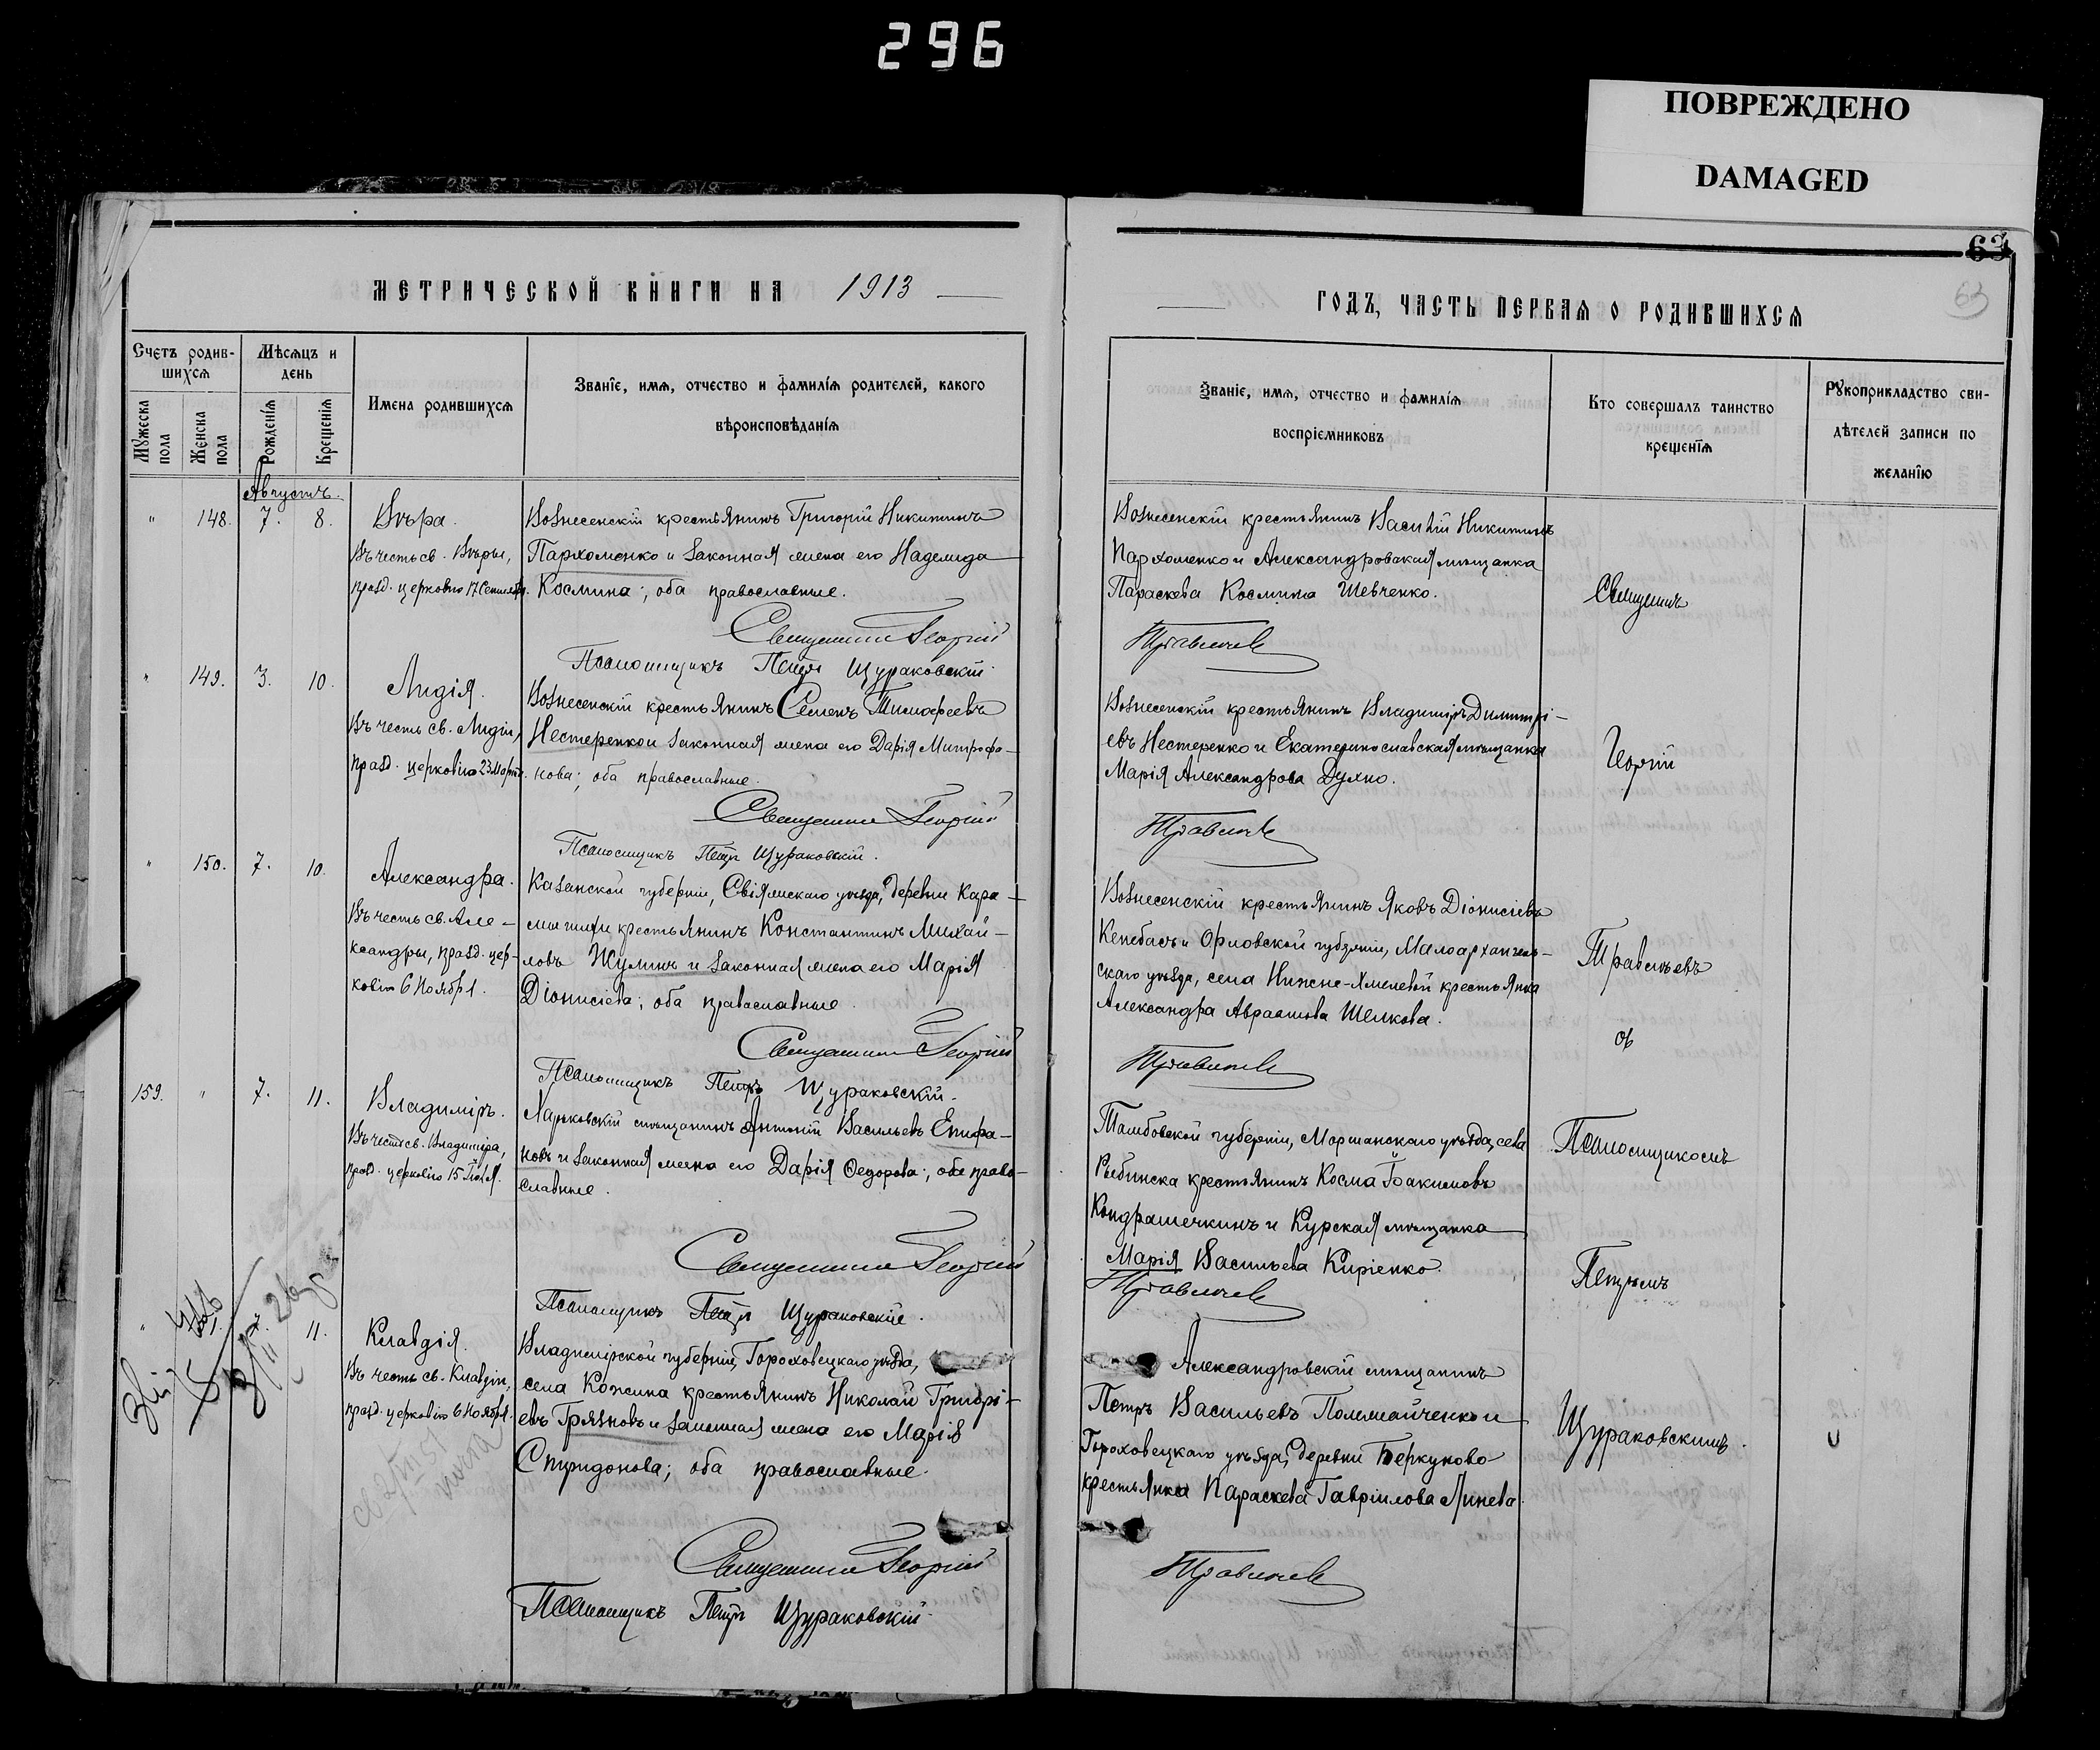 296
ПОВРЕЖДЕНО
DAMAGED
63
63
МЕТРИЧЕСКОЙ КНИГИ НА 1913
ГОДЪ, ЧАСТЬ ПЕРВАЯ О РОДИВШИХСЯ
Счетъ родив-
шихся
Мужеска пола
Женска пола
Мѣсяцъ и день
Рожденія
Крещенія
Имена родившихся
Званіе, имя, отчество и фамилія родителей, какого
вѣроисповѣданія
Званіе, имя, отчество и фамилія
воспріемниковъ
Кто совершалъ таинство
крещенія
Рукоприкладство сви-
дѣтелей записи по
желанію
Августъ.
" 148. 7. 8.
Вѣра.
Въ честь св. Вѣры,
празд. церковію 17 Сентября.
Вознесенскій крестьянинъ Григорій Никитинъ
Пархоменко и законная жена его Надежда
Космина; оба православные.
Священникъ Георгій
Псаломщикъ Петръ Щураковскій.
Вознесенскій крестьянинъ Василій Никитинъ
Пархоменко и Александровская мѣщанка
Параскева Космина Шевченко.
Травинъ
" 149. 3. 10.
Лидія.
Въ честь св. Лидіи,
празд. церковію 23 Марта.
Вознесенскій крестьянинъ Семенъ Тимофеевъ
Нестеренко и законная жена его Дарія Митрофа-
нова; оба православные.
Священникъ Георгій
Псаломщикъ Петръ Щураковскій.
Вознесенскій крестьянинъ Владиміръ Димитрі-
евъ Нестеренко и Екатеринославская мѣщанка
Марія Александрова Духно.
" 150. 7. 10.
Александра.
Въ честь св. Але-
ксандры, празд. цер-
ковію 6 Ноября.
Казанской губерніи, Свіяжскаго уѣзда, деревни Кара-
крестьянинъ Константинъ Михай-
ловъ Жулинъ и законная жена его Марія
Діонисіева; оба православные.
Священникъ Георгій
Псаломщикъ Петръ Щураковскій.
Вознесенскій крестьянинъ Яковъ Діонисіевъ
Кенебасъ и Орловской губерніи, Малоархангель-
скаго уѣзда, села Нижне-Хмелевой крестьянка
Александра Авраамова Шелкова.
159. " 7. 11.
Владиміръ.
Въ честь св. Владиміра,
празд. церковію 15 Іюля.
Харьковскій мѣщанинъ Антоній Васильевъ Епифа-
новъ и законная жена его Дарія Ѳедорова; оба право-
славные.
Священникъ Георгій
Псаломщикъ Петръ Щураковскій.
Тамбовской губерніи, Моршанскаго уѣзда, села
Рыбинска крестьянинъ Косма Іоакимовъ
Кондрашечкинъ и Курская мѣщанка
Марія Васильева Киріенко.
" 11.
Клавдія.
Въ честь св. Клавдіи,
празд. церковію 6 Ноября.
Владимірской губерніи, Гороховецкаго уѣзда,
села Кожина крестьянинъ Николай Григорі-
евъ Грязновъ и законная жена его Марія
Спиридонова; оба православные.
Священникъ Георгій
Псаломщикъ Петръ Щураковскій.
Александровскій мѣщанинъ
Петръ Васильевъ и
Гороховецкаго уѣзда, деревни Беркуново
крестьянка Параскева Гавріилова Линева.
Священникъ
Георгій
съ
Псаломщикомъ
Петромъ
Щураковскимъ.